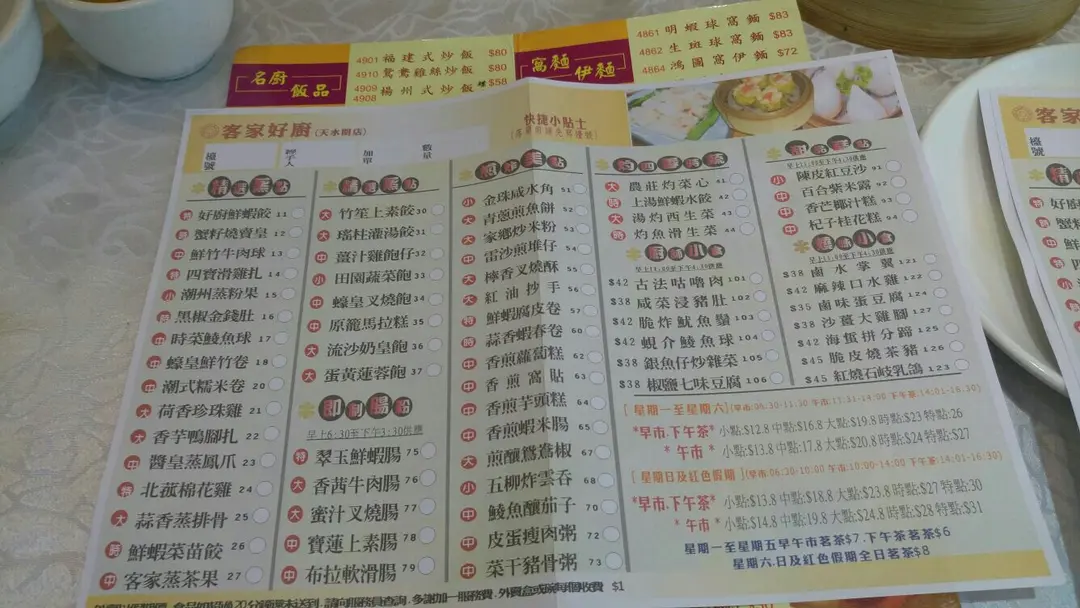 名廚飯品
4901 福建式炒飯 $80
4910 鴛鴦雞絲炒飯 $80
4909
4908 楊州式炒飯 $58
窩麵伊麵
4861 明蝦球窩麵 $83
4862 生斑球窩麵 $83
4864 鴻圖窩伊麵 $72
客家好廚(天水圍店)
快捷小貼士
檯號
經手人
加單
數量
特 好廚鮮蝦餃 11
時 蟹籽燒賣皇 12
中 鮮竹牛肉球 13
特 四寶滑雞扎 14
小 潮州蒸粉果 15
特 黑椒金錢肚 16
中 時菜鯪魚球 17
中 蠔皇鮮竹卷 18
中 潮式糯米卷 20
大 荷香珍珠雞 21
大 香芋鴨腳扎 22
中 醬皇蒸鳳爪 23
特 北菰棉花雞 24
大 蒜香蒸排骨 25
時 鮮蝦菜苗餃 26
中 客家蒸茶果 27
大 竹笙上素餃 30
大 瑤柱灌湯餃 31
中 薑汁雞飽仔 32
小 田園蔬菜飽 33
中 蠔皇叉燒飽 34
中 原籠馬拉糕 35
大 流沙奶皇飽 36
大 蛋黃蓮蓉飽 37
即制腸粉
早上6:30至下午3:30供應
特 翠玉鮮蝦腸 75
大 香茜牛肉腸 76
大 蜜汁叉燒腸 77
中 寶蓮上素腸 78
中 布拉軟滑腸 79
小 金珠咸水角 51
大 青蔥煎魚餅 52
大 家鄉炒米粉 53
中 雷沙煎堆仔 54
大 檸香叉燒酥 55
大 紅油抄手 56
特 鮮蝦腐皮卷 57
時 蒜香蝦春卷 60
中 香煎蘿蔔糕 62
中 香煎窩貼 63
中 香煎芋頭糕 64
中 香煎蝦米腸 65
大 煎釀鴛鴦椒 67
小 五柳炸雲吞 68
中 鯪魚釀茄子 70
中 皮蛋瘦肉粥 72
中 菜干豬骨粥 73
大 農莊灼菜心 41
時 上湯鮮蝦水餃 42
大 湯灼西生菜 43
時 灼魚滑生菜 44
廚師小食
$42 古法咕嚕肉 101
$38 咸菜浸豬肚 102
$42 脆炸魷魚鬚 103
$42 蜆介鯪魚球 104
$38 銀魚仔炒雜菜 105
$38 椒鹽七味豆腐 106
小 陳皮紅豆沙 91
中 百合紫米露 92
中 香芒椰汁糕 93
中 杞子桂花糕 94
$38 鹵水掌翼 121
$42 麻辣口水雞 122
$35 鹵味蛋豆腐 124
$38 沙薑大雞腳 127
$42 海蜇拼分蹄 125
$45 脆皮燒茶豬 126
$45 紅燒石岐乳鴿 123
[ 星期一至星期六](早市:06:30-11:30 午市:11:31-14:00 下午茶:14:01-16:30)
*早市.下午茶* 小點:$12.8 中點:$16.8 大點:$19.8 時點:$23 特點:26
* 午市 * 小點:$13.8 中點:17.8 大點:$20.8 時點:$24 特點:$27
[ 星期日及紅色假期 ](早市:06:30-10:00 午市:10:00-14:00 下午茶:14:01-16:30)
*早市.下午茶* 小點:$13.8 中點:$18.8 大點:$23.8 時點:$27 特點:30
* 午市 * 小點:$14.8 中點:19.8 大點:$24.8 時點:$28 特點:$31
星期一至星期五早午市茗茶$7.下午茶茗茶$6
星期六.日及紅色假期全日茗茶$8
20分鐘還未送到,請向服務員查詢,多謝加一服務費.外賣盒或碗每個收費 $1
客家
檯號